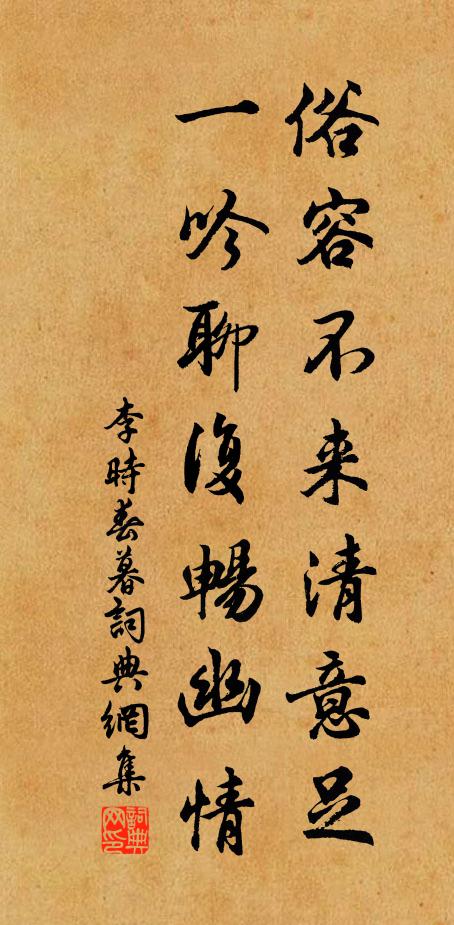 俗容不来清意足
一吟聊復暢幽情
李時春暮詞典網集
詞典网印